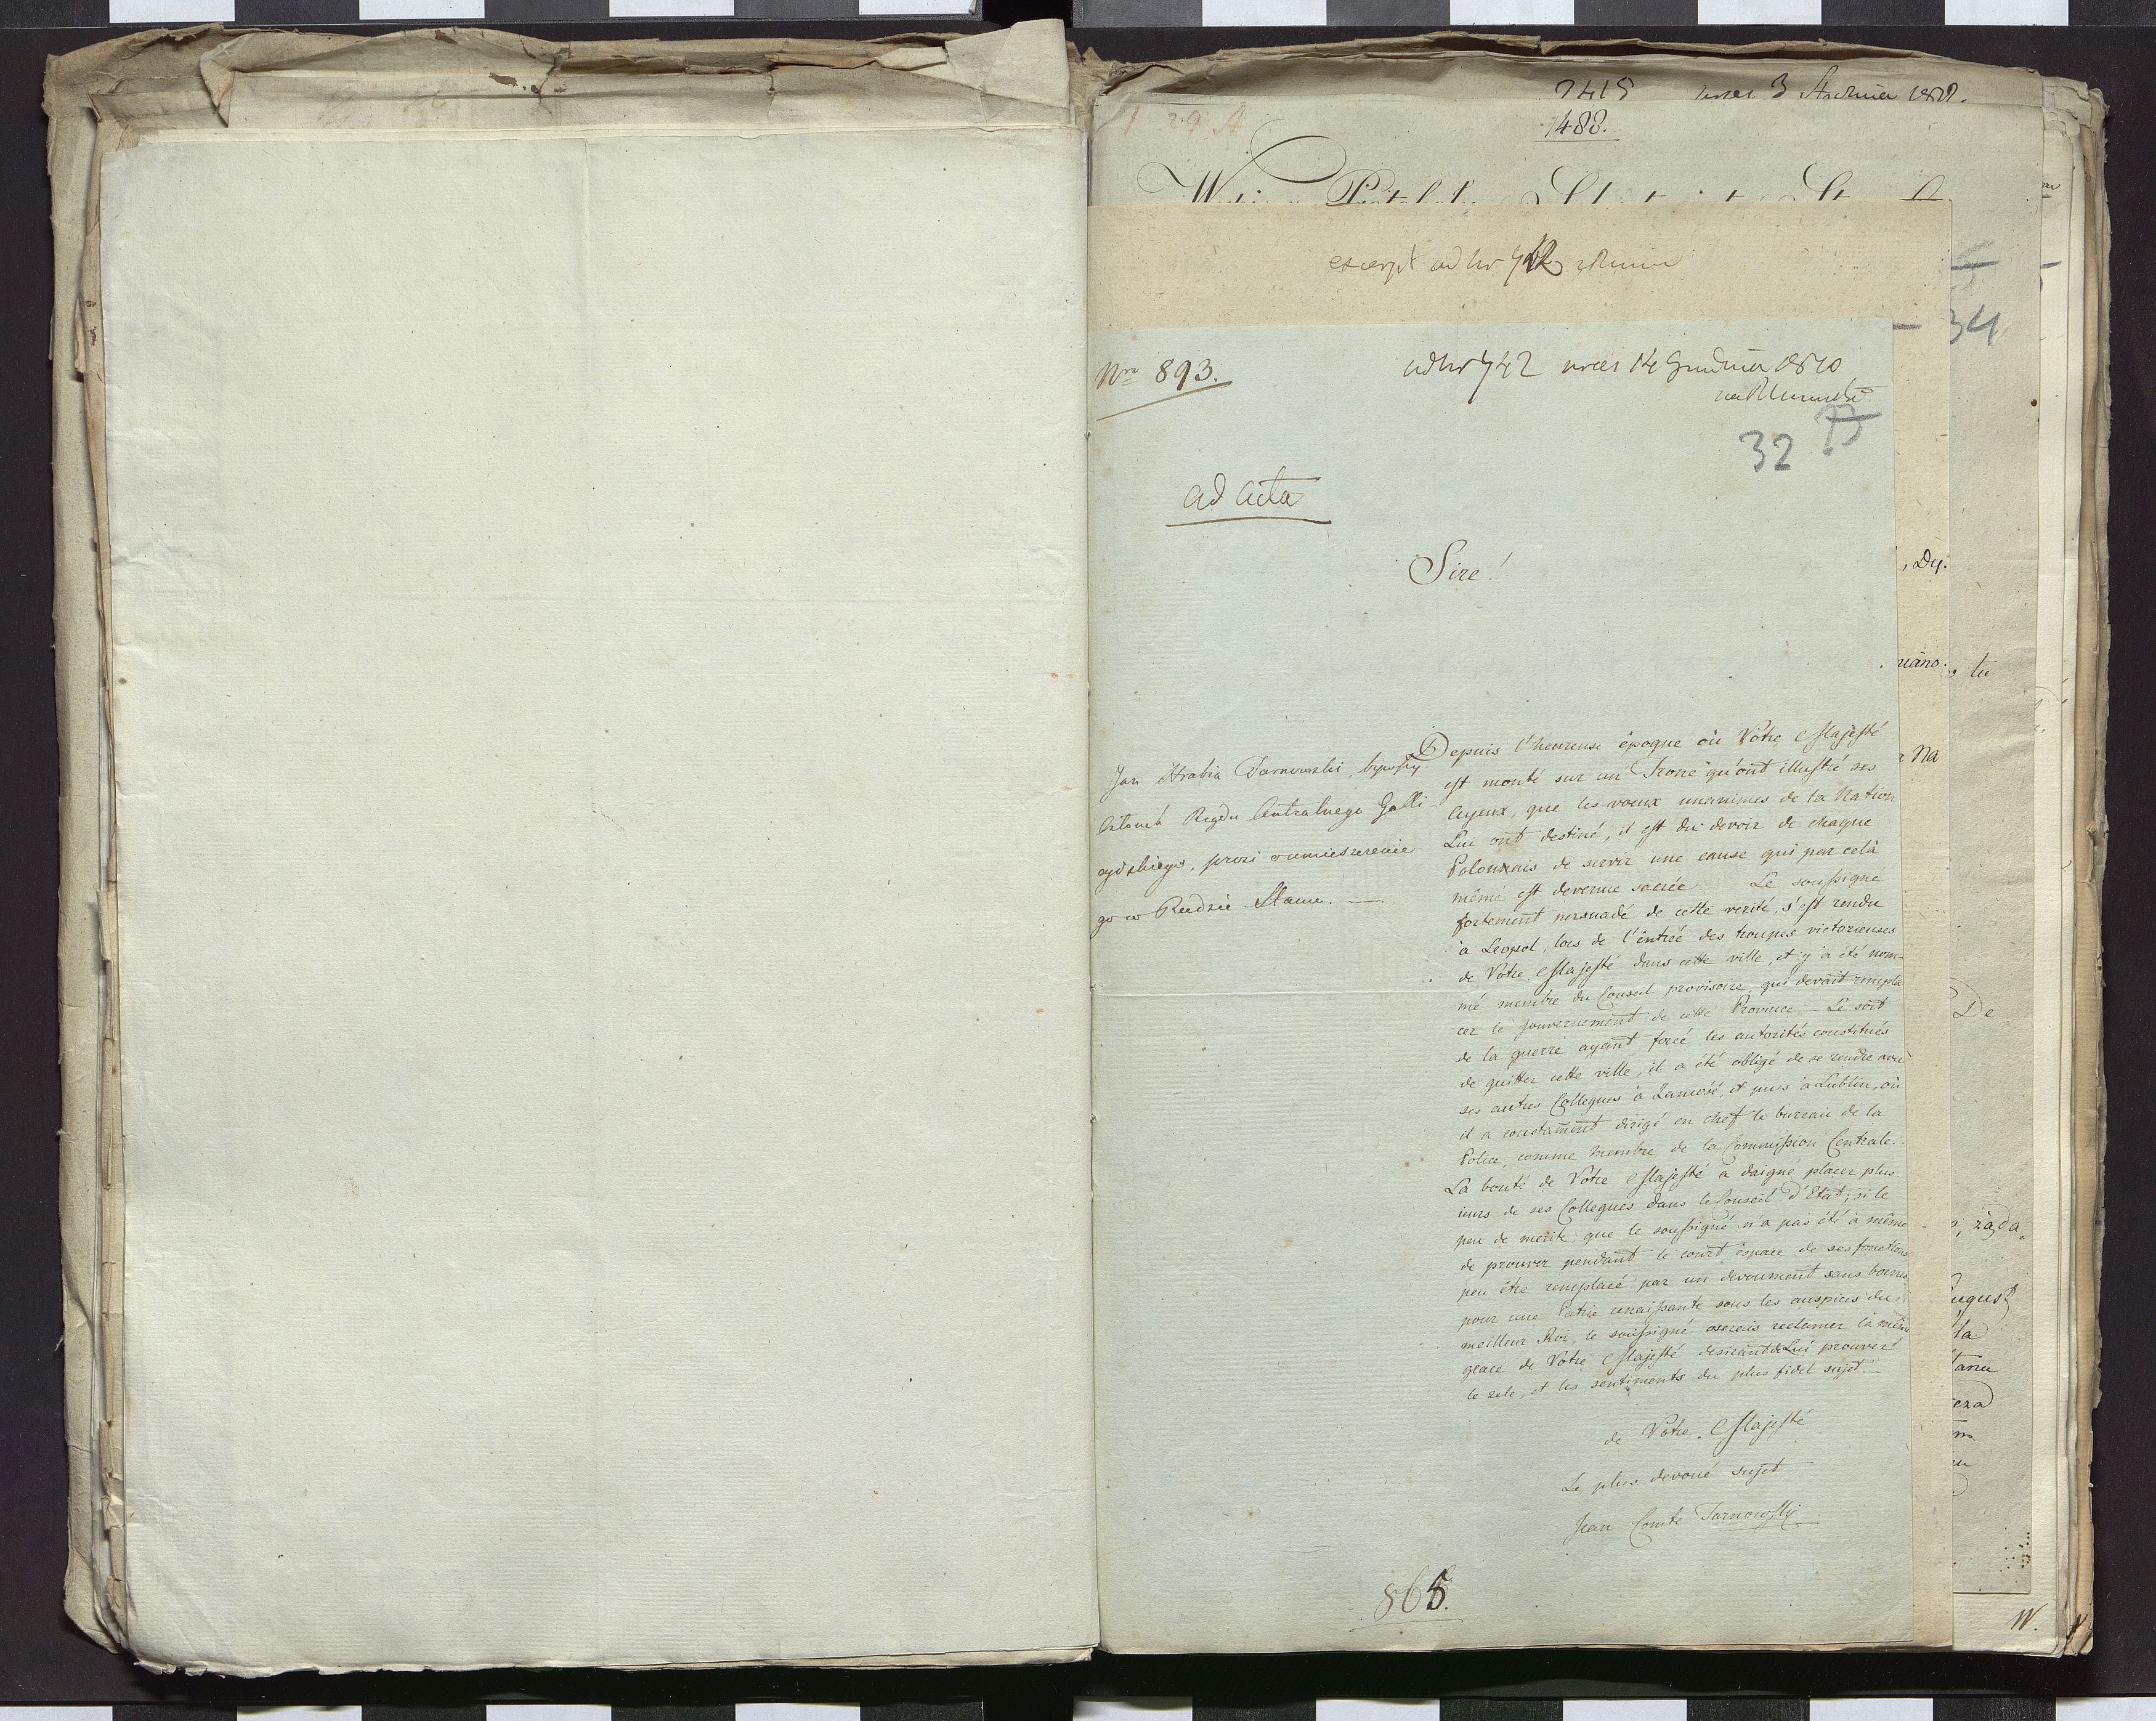 2415 3 1811.
1488.
excerpt ad Nr 742
Nro 893.
ad Nr 742 14 Grudnia 1810
32 73
34
ad acta
Sire!
Jan Hrabia Tarnowski, bywszy
Członek Rządu Centralnego Galli-
cyiskiego, prosi o umieszczenie
go w Radzie Stanu. —
Depuis l'heureuse époque où Votre Majesté
est monté sur un Trone qu'ont illustré ses
Ayeux, que les voeux unanimes de la Nation
Lui ont destiné, il est du devoir de chaque
Polonnais de servir une cause qui par celà
même est devenue sacrée. Le soussigné
fortement persuadé de cette verité, s'est rendu
à Leopol, lors de l'entrée des troupes victorieuses
de Votre Majesté dans cette ville, et y a été nom-
mé membre du Conseil provisoire, qui devait rempla
cer le gouvernement de cette Province — Le sort
de la guerre ayant forcé les autorités constitués
de quitter cette ville, il a été obligé de se rendre avec
ses autres Collegues à Zamość, et puis à Lublin, où
il a constament dirigé en chef le bureau de la
Police, comme membre de la Commission Centrale.
La bonté de Votre Majesté a daigné placer plus
ieurs de ses Collegues dans le Conseil d'Etat, si le
peu de merite que le soussigné n'a pas été à même
de prouver pendant le court espace de ses fonctions
peu être remplacé par un devoument sans bornes
pour une Patrie renaissante sous les auspices du
meilleur Roi, le soussigné oserais reclamer la même
grace de Votre Majesté desirant de Lui prouver
le zele, et les sentiments du plus fidel sujet —
de Votre Majesté
Le plus devoué sujet
Jean Comte Tarnowski
865.
, Dy.
tu
Na
De
żąda,
August
la
W.